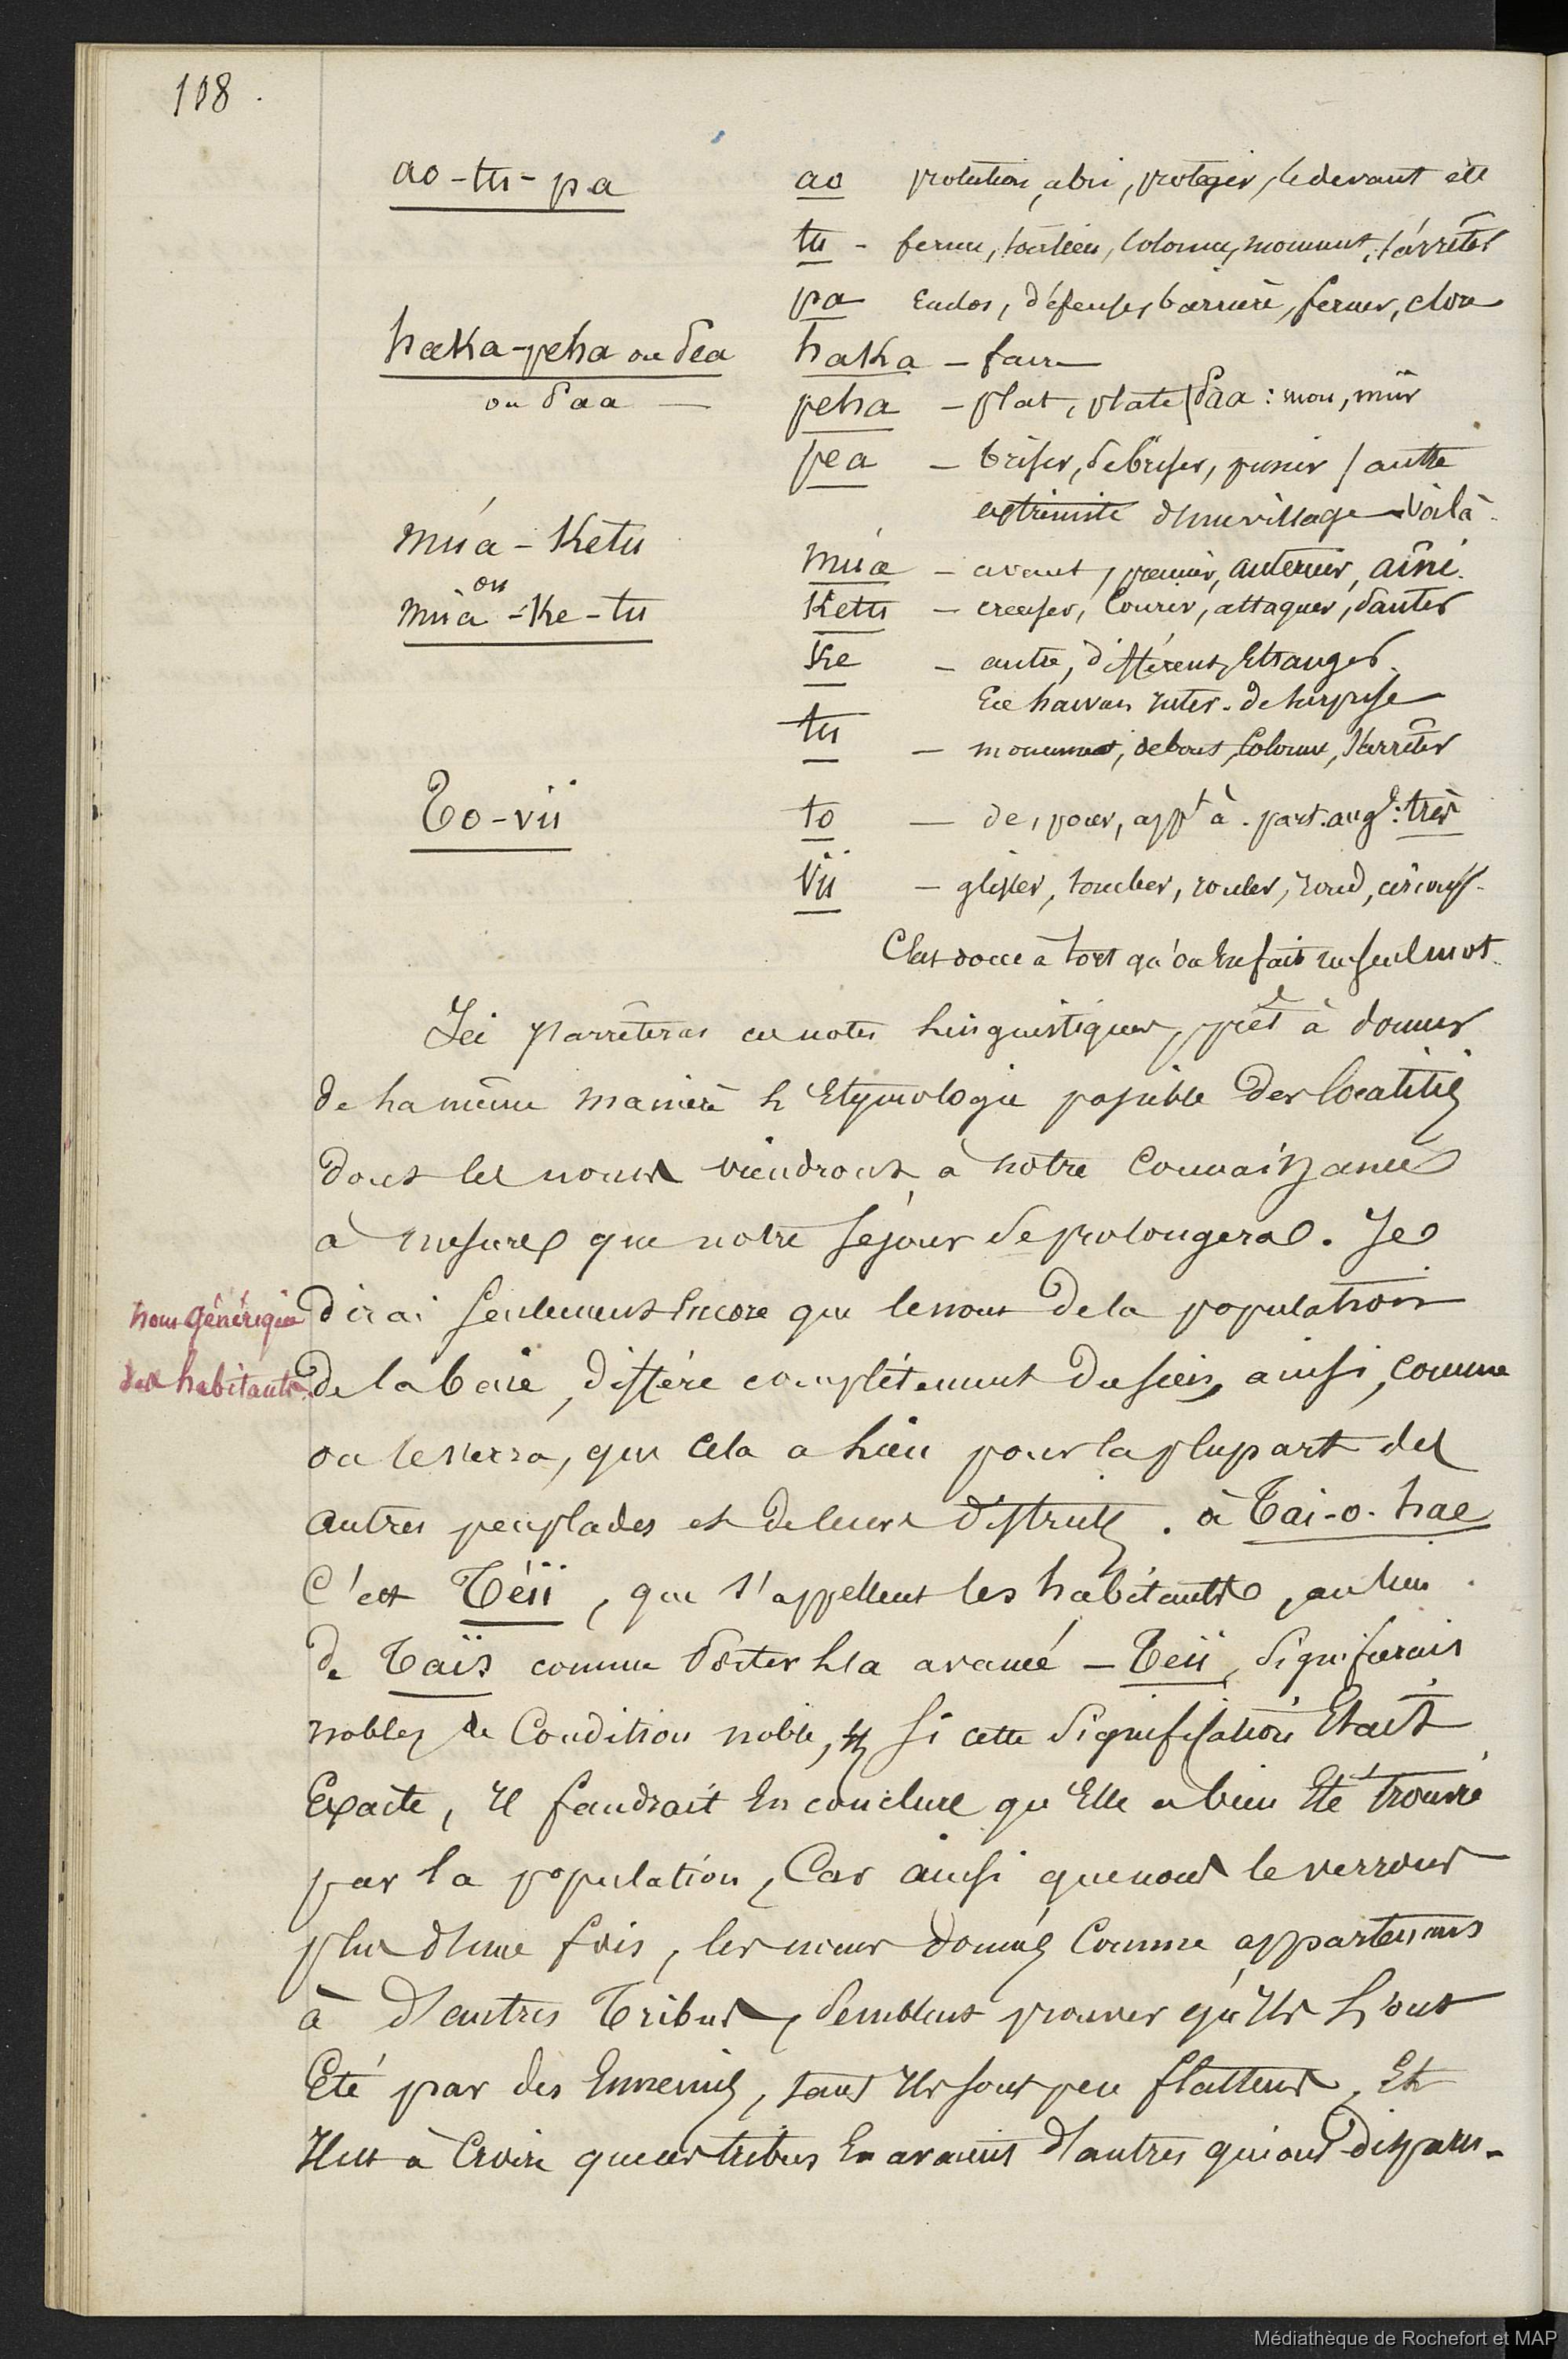 118.
ao-tu-pa ao protection, abri, protéger, le devant etc
tu - ferme, soutien, colonne, monument, s'arrêter
pa enclos, défense, barrière, fermer, clore
haka-peha ou Sea haka - faire
ou Saa — peha - plat, plate / Saa: mou, mûr
pea - briser, se briser, punir / autre
extrémité d'un village - voilà.
múa-Ketu múa - avant, premier, antérieur, aîné.
ou
múa-Ke-tu Ketu - creuser, courir, attaquer, sauter
Ke - autre, différent, Etranger.
inter. de surprise
tu - monument, debout, colonne, s'arrêter
To-vii to — de, pour, appt à. part. augve: très
vii - glisser, toucher, rouler, rond,
C'est donc à tort qu'on En fait un seul mot.
Ici s'arrêteras ces notes linguistiques, prêt à donner
de la même manière l'Etymologie possible Des localités
dont les noms viendront à notre Connaissance
à mesure que notre séjour se prolongera. Je
nom générique
dirai seulement Encore que le nom de la population
des habitants.
De la baie, diffère complétement du sien, ainsi, comme
on le verra, que Cela a lieu pour la plupart des
autres peuplades et de leurs districts. à Tai-o-hae
C'est Téii, que s'appellent les habitants, au lieu
de Taïs comme Porter l'a avancé - Teii, Signifierais
nobles de Condition noble, Si cette Signification Etait
Exacte, Il faudrait En conclure qu'Elle a bien Eté trouvé
par la population, Car ainsi que nous le verrons
plus d'une fois, les noms donnés Comme appartenans
à d'autres Tribus, Semblent prouver qu'Ils l'ont
Eté par des Ennemis, tant Ils sont peu flatteurs, Et
Il est à Croire que ces tribus En avaient d'autres qui ont disparu-
Médiathèque de Rochefort et MAP